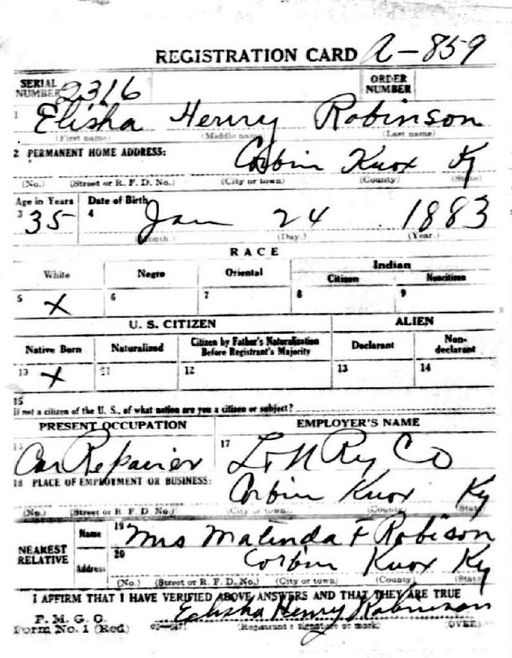 REGISTRATION CARD A-859
SERIAL NUMBER 2316 ORDER NUMBER
1 Elisha Henry Robinson
(First name) (Middle name) (Last name)
2 PERMANENT HOME ADDRESS: Corbin Knox Ky
(No.) (Street or R. F. D. No.) (City or town) (County) (State)
Age in Years Date of Birth
3 35 4 Jan 24 1883
(Month.) (Day.) (Year.)
RACE
White Negro Oriental Indian
Citizen Noncitizen
5 X 6 7 8 9
U. S. CITIZEN ALIEN
Native Born Naturalized Citizen by Father's Naturalization Before Registrant's Majority Declarant Non-declarant
10 X 11 12 13 14
15
If not a citizen of the U. S., of what nation are you a citizen or subject?
PRESENT OCCUPATION EMPLOYER'S NAME
16 Car Repairer 17 L & N Ry Co
18 PLACE OF EMPLOYMENT OR BUSINESS: Corbin Knox Ky
(No.) (Street or R. F. D. No.) (City or town) (County) (State)
NEAREST RELATIVE Name 19 Mrs Malinda F Robison
Address 20 Corbin Knox Ky
(No.) (Street or R. F. D. No.) (City or town) (County) (State)
I AFFIRM THAT I HAVE VERIFIED ABOVE ANSWERS AND THAT THEY ARE TRUE
P. M. G. O.
Form No. 1 (Red) Elisha Henry Robinson
(Registrant's signature or mark) (OVER)